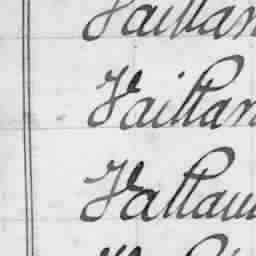 Vaillan
Vaillan
Vallau